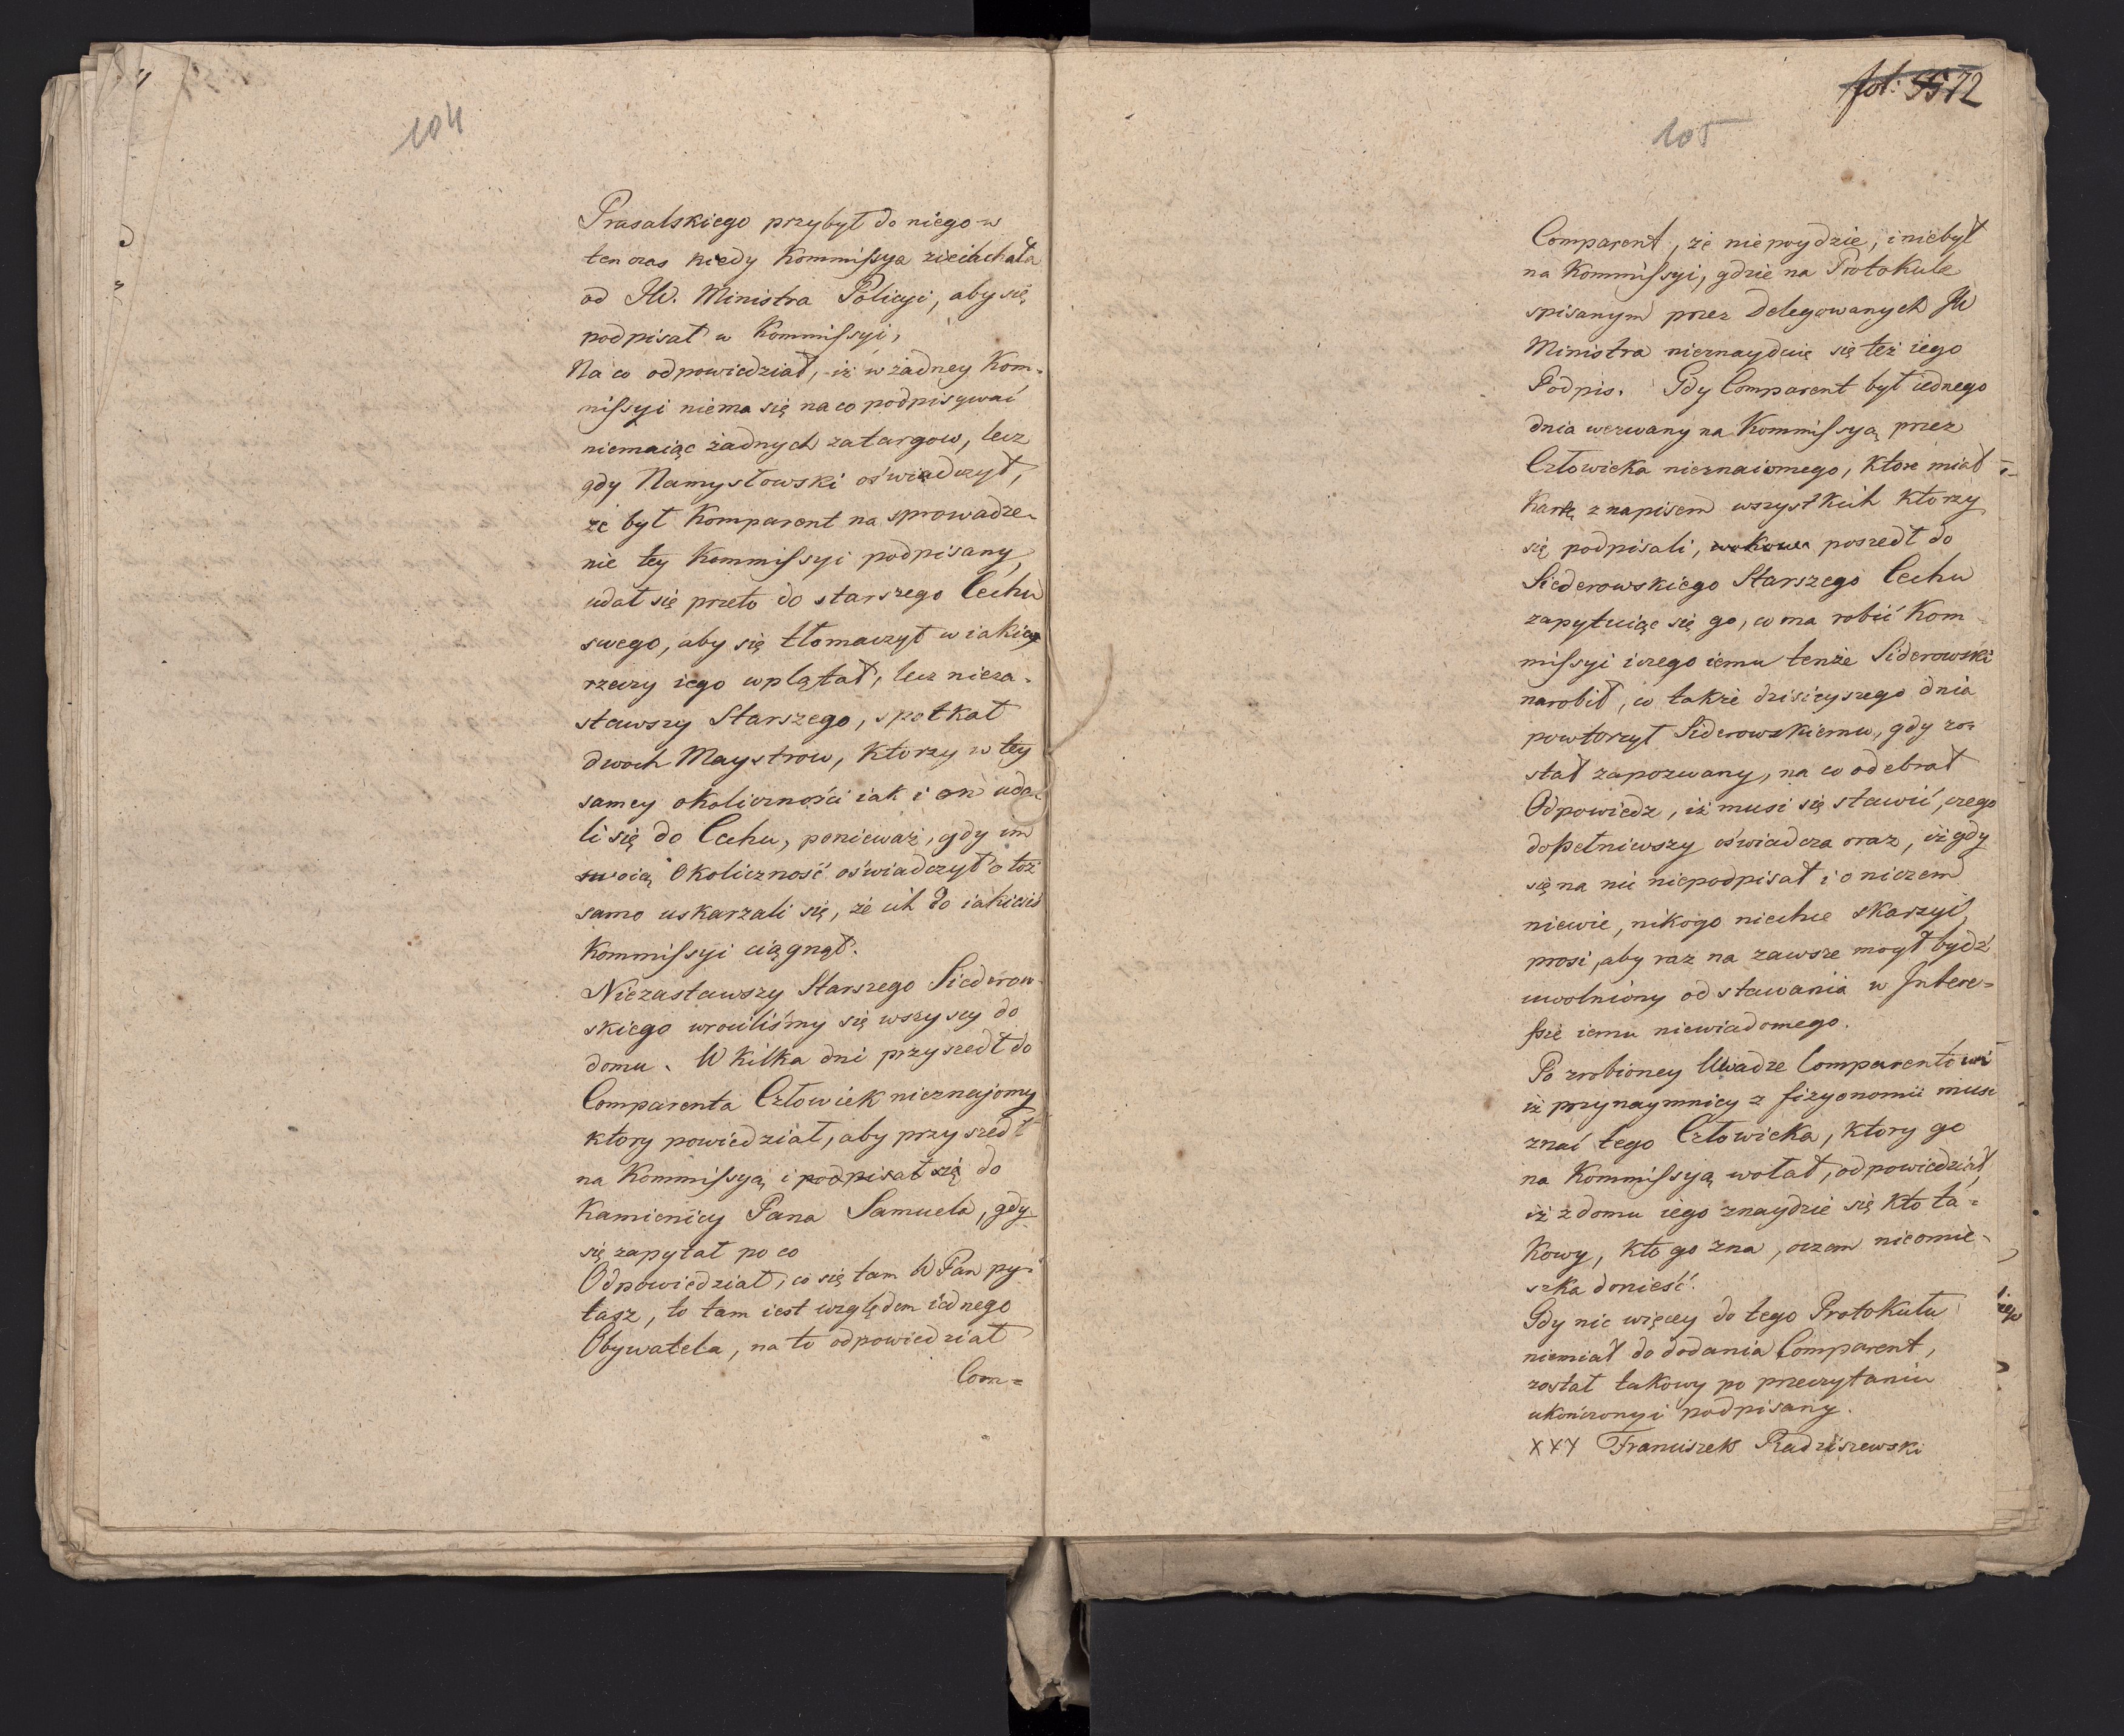 104
Prasalskiego przybył do niego w
ten czas kiedy Kommissya ziechchała
od JW. Ministra Policyi, aby się
podpisał w Kommissyi,
Na co odpowiedział, iż w żadney Kom-
missyi niema się na co podpisywać
niemaiąc żadnych zatargow, lecz
gdy Namysłowski oświadczył,
że był Komparent na sprowadze-
nie tey Kommissyi podpisany,
udał się przeto do starszego Cechu
swego, aby się tłomaczył w iakieyż
rzeczy iego wplątał, lecz nieza-
stawszy Starszego, spotkał
dwoch Maystrow, ktorzy w tey
samey okoliczności iak i on uda-
li się do Cechu, ponieważ, gdy im
swoią Okoliczność oświadczył o toż
samo uskarzali się, że ich do iakieiś
Kommissyi ciągnął.
Niezastawszy Starszego Siederow-
skiego wrociliśmy się wszyscy do
domu. W kilka dni przyszedł do
Comparenta Człowiek nieznajomy
ktory powiedział, aby przyszedł
na Kommissyą i podpisał się do
Kamienicy Pana Samuela, gdy
się zapytał po co
Odpowiedział, co się tam WPan py-
tasz, to tam iest względem iednego
Obywatela, na to odpowiedział
Com=
fol: 72
105
Comparent, że nie poydzie, i niebył
na Kommissyi, gdzie na Protokule
spisanym przez Delegowanych JW
Ministra nieznayduie się też iego
Podpis. Gdy Comparent był iednego
dnia wezwany na Kommissyą przez
Człowieka nieznaiomego, ktore miał
Kartę z napisem wszystkich ktorzy
się podpisali, poszedł do
Siederowskiego Starszego Cechu
zapytuiąc się go, co ma robić Kom
missyi i czego iemu tenże Siderowski
narobił, co także dzisieyszego dnia
powtorzył Siderowskiemu, gdy zo-
stał zapozwany, na co odebrał
Odpowiedz, iż musi się stawić, czego
dopełniwszy oświadcza oraz, iż gdy
się na nic niepodpisał i o niczem
niewie, nikogo niechce skarzyć,
prosi, aby raz na zawsze mogł bydź
uwolniony od stawania w Intere-
ssie iemu niewiadomego.
Po zrobioney Uwadze Comparentowi
iż przynaymniey z fizyonomii musi
znać tego Człowieka, ktory go
na Kommissyą wołał, odpowiedział,
iż z domu iego znaydzie się kto ta-
kowy, kto go zna, oczem nieomie-
szka donieść.
Gdy nic więcey do tego Protokułu
niemiał do dodania Comparent,
został takowy po przeczytaniu
ukończony i podpisany.
XXX Franciszek Radziszewski